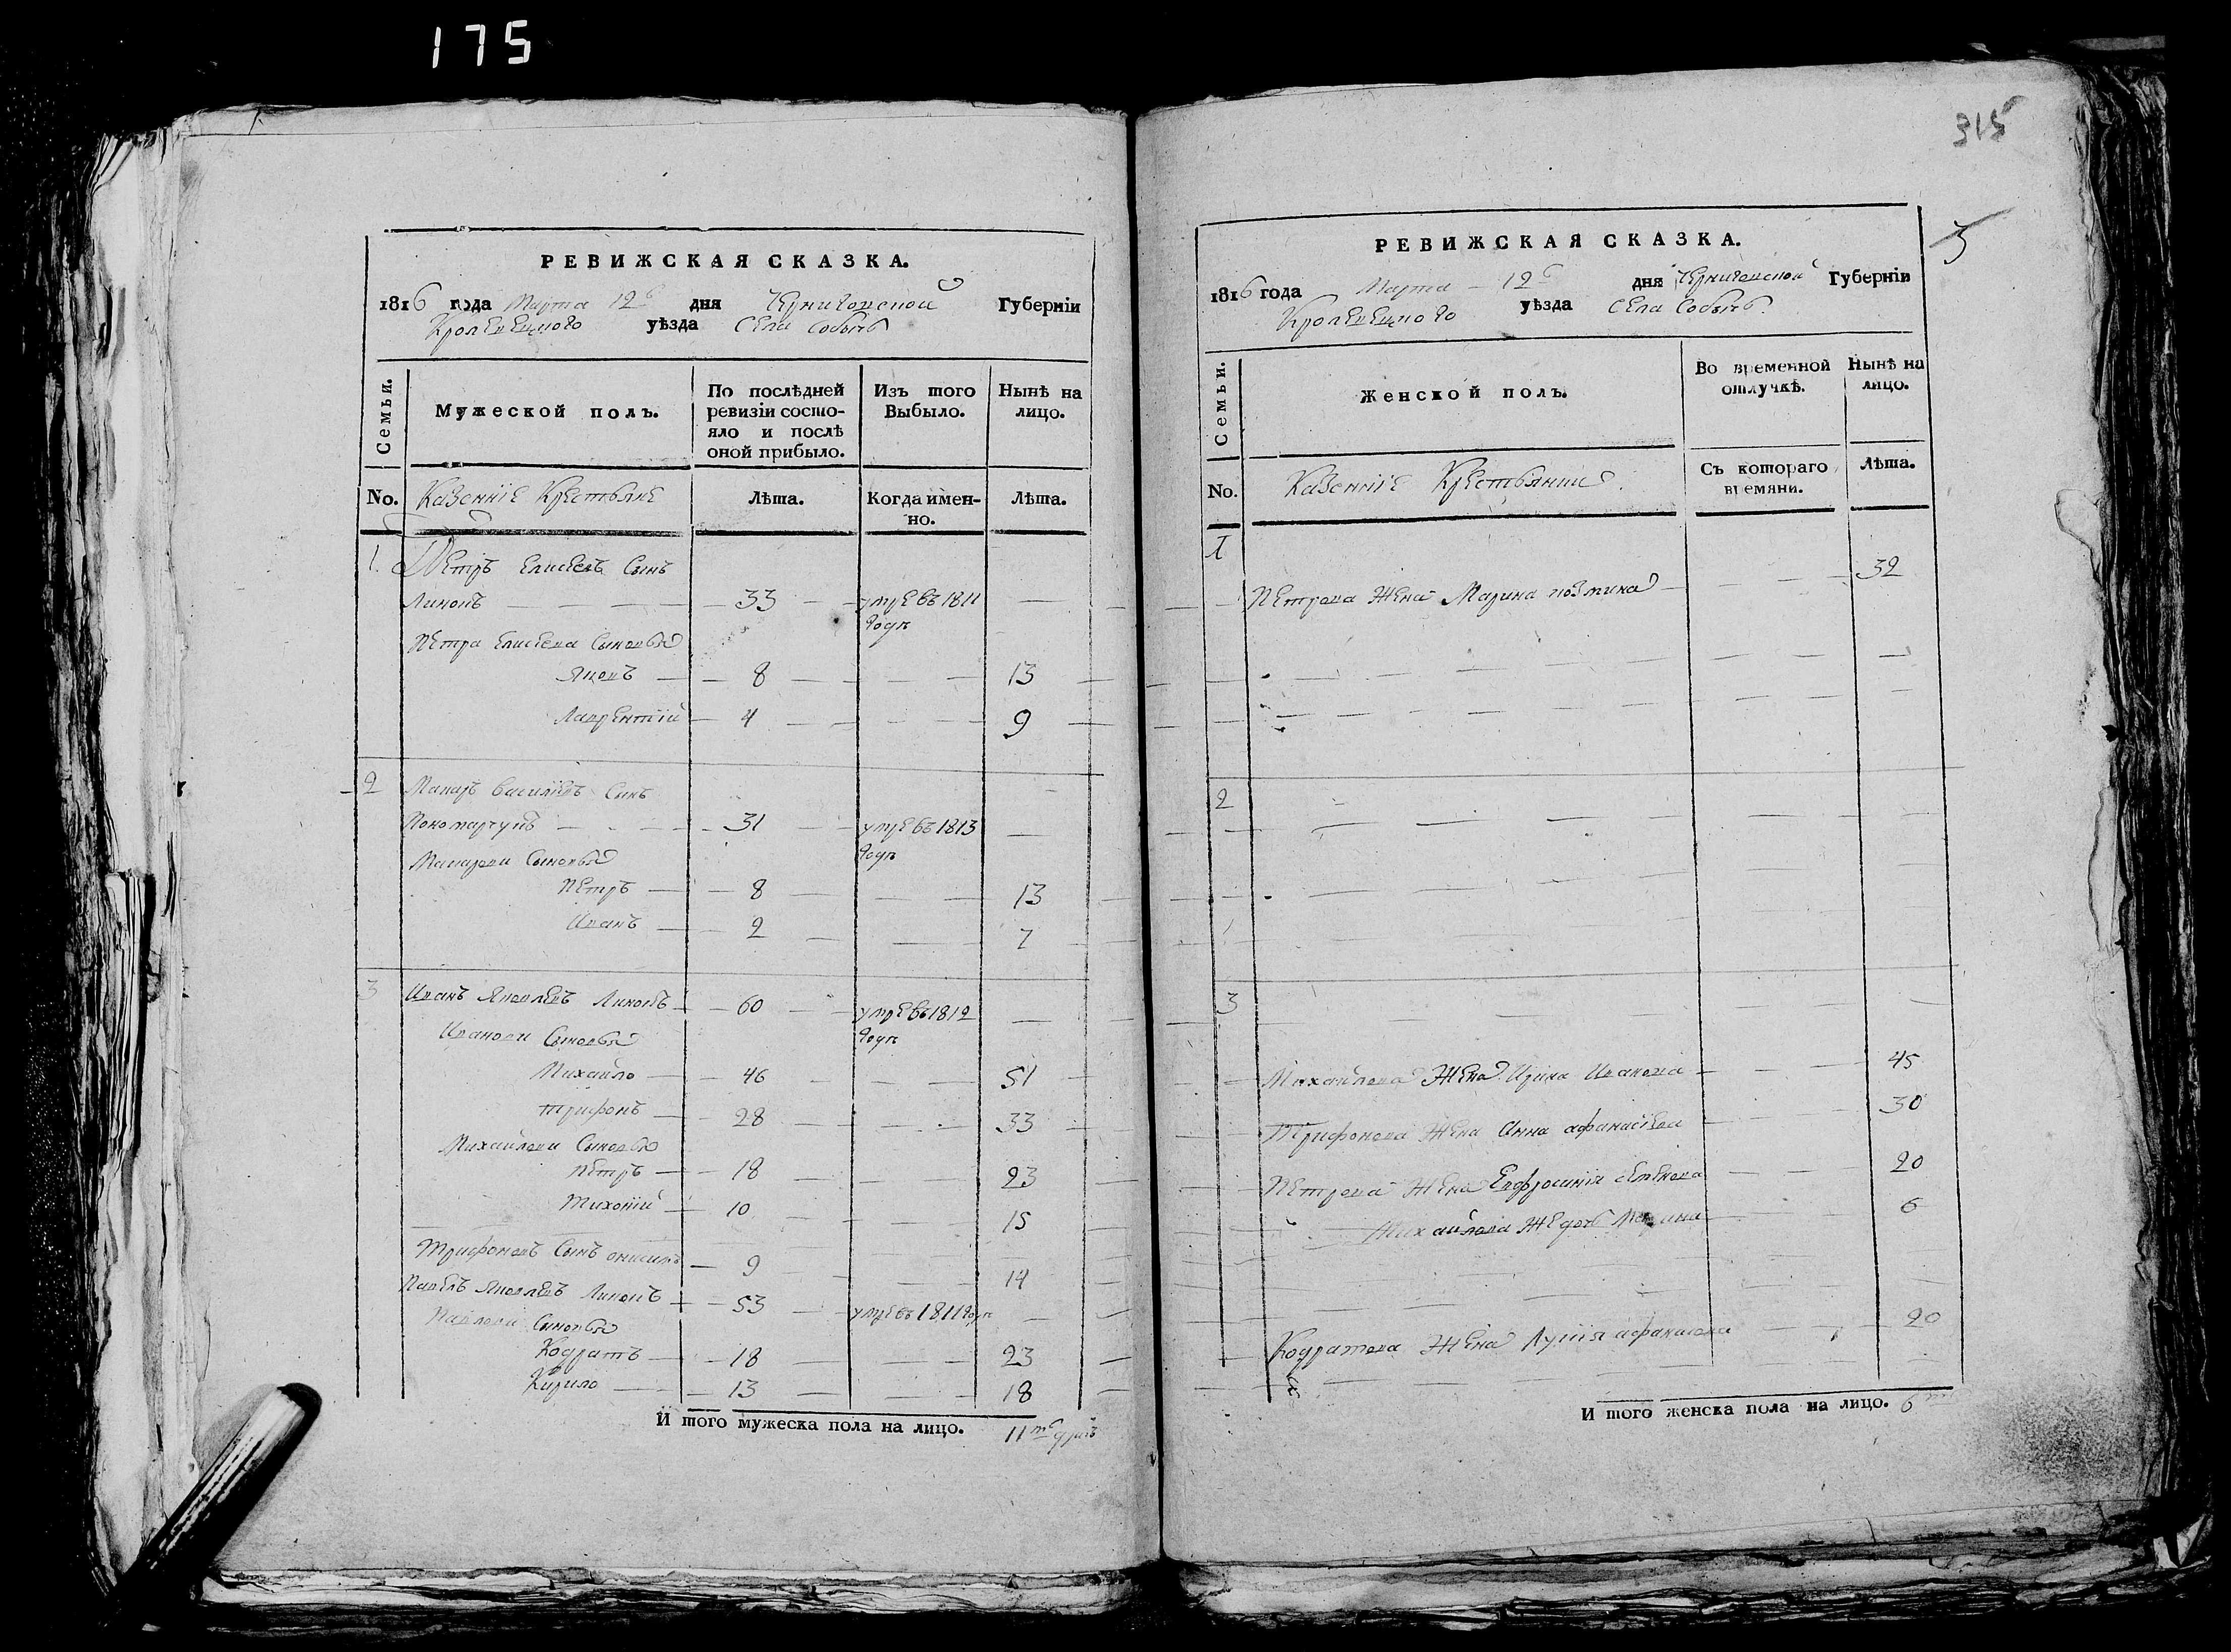 175
315
РЕВИЖСКАЯ СКАЗКА.
1816 года Марта 12 дня Черниговской Губерніи
Кролевецкого уѣзда Села Собычь
Семьи.
Мужеской полъ.
По послѣдней
ревизіи состо-
яло и послѣ
оной прибыло.
Изъ того
Выбыло.
Нынѣ на
лицо.
No.
Казенніе Крестьяне
Лѣта.
Когда имен-
но.
Лѣта.
1. Петръ Елисеевъ Сынъ
33 умре въ 1811
годѣ
Петра Елисеева Сыновья
Яковъ 8 13
Лаврентій 4 9
2 Макаръ Василіевъ Синъ
31 умре въ 1813
годѣ
Макарови Сыновья
Петръ 8 13
Иванъ 2 7
3 Иванъ Яковлевъ 60 умре въ 1812
годѣ
Иванови Сыновья
Михайло 46 51
Трифонъ 28 33
Михайлови Сыновья
Петръ 18 23
Тихоній 10 15
Трифоновъ Сынъ 9 14
Павелъ Яковлевъ 53 умре въ 1811 годѣ
Павлови Сыновья
Кодратъ 18 23
Кирило 13 18
И того мужеска пола на лицо. 11
РЕВИЖСКАЯ СКАЗКА.
3
1816 года Марта 12 дня Черниговской Губерніи
Кролевецкого уѣзда Села Собычь
Семьи.
Женской полъ.
Во временной
отлучкѣ.
Нынѣ на
лицо.
No.
Казенніе
Съ котораго
времяни.
Лѣта.
1
Петрова Жена Марина 32
2
3
Михайлова Жена Ирина Иванова 45
Трифонова Жена Анна Афанасіева 30
Петрова Жена Евфросинія Семенова 20
Михайлова 6
Кодратова Жена 20
И того женска пола на лицо. 6